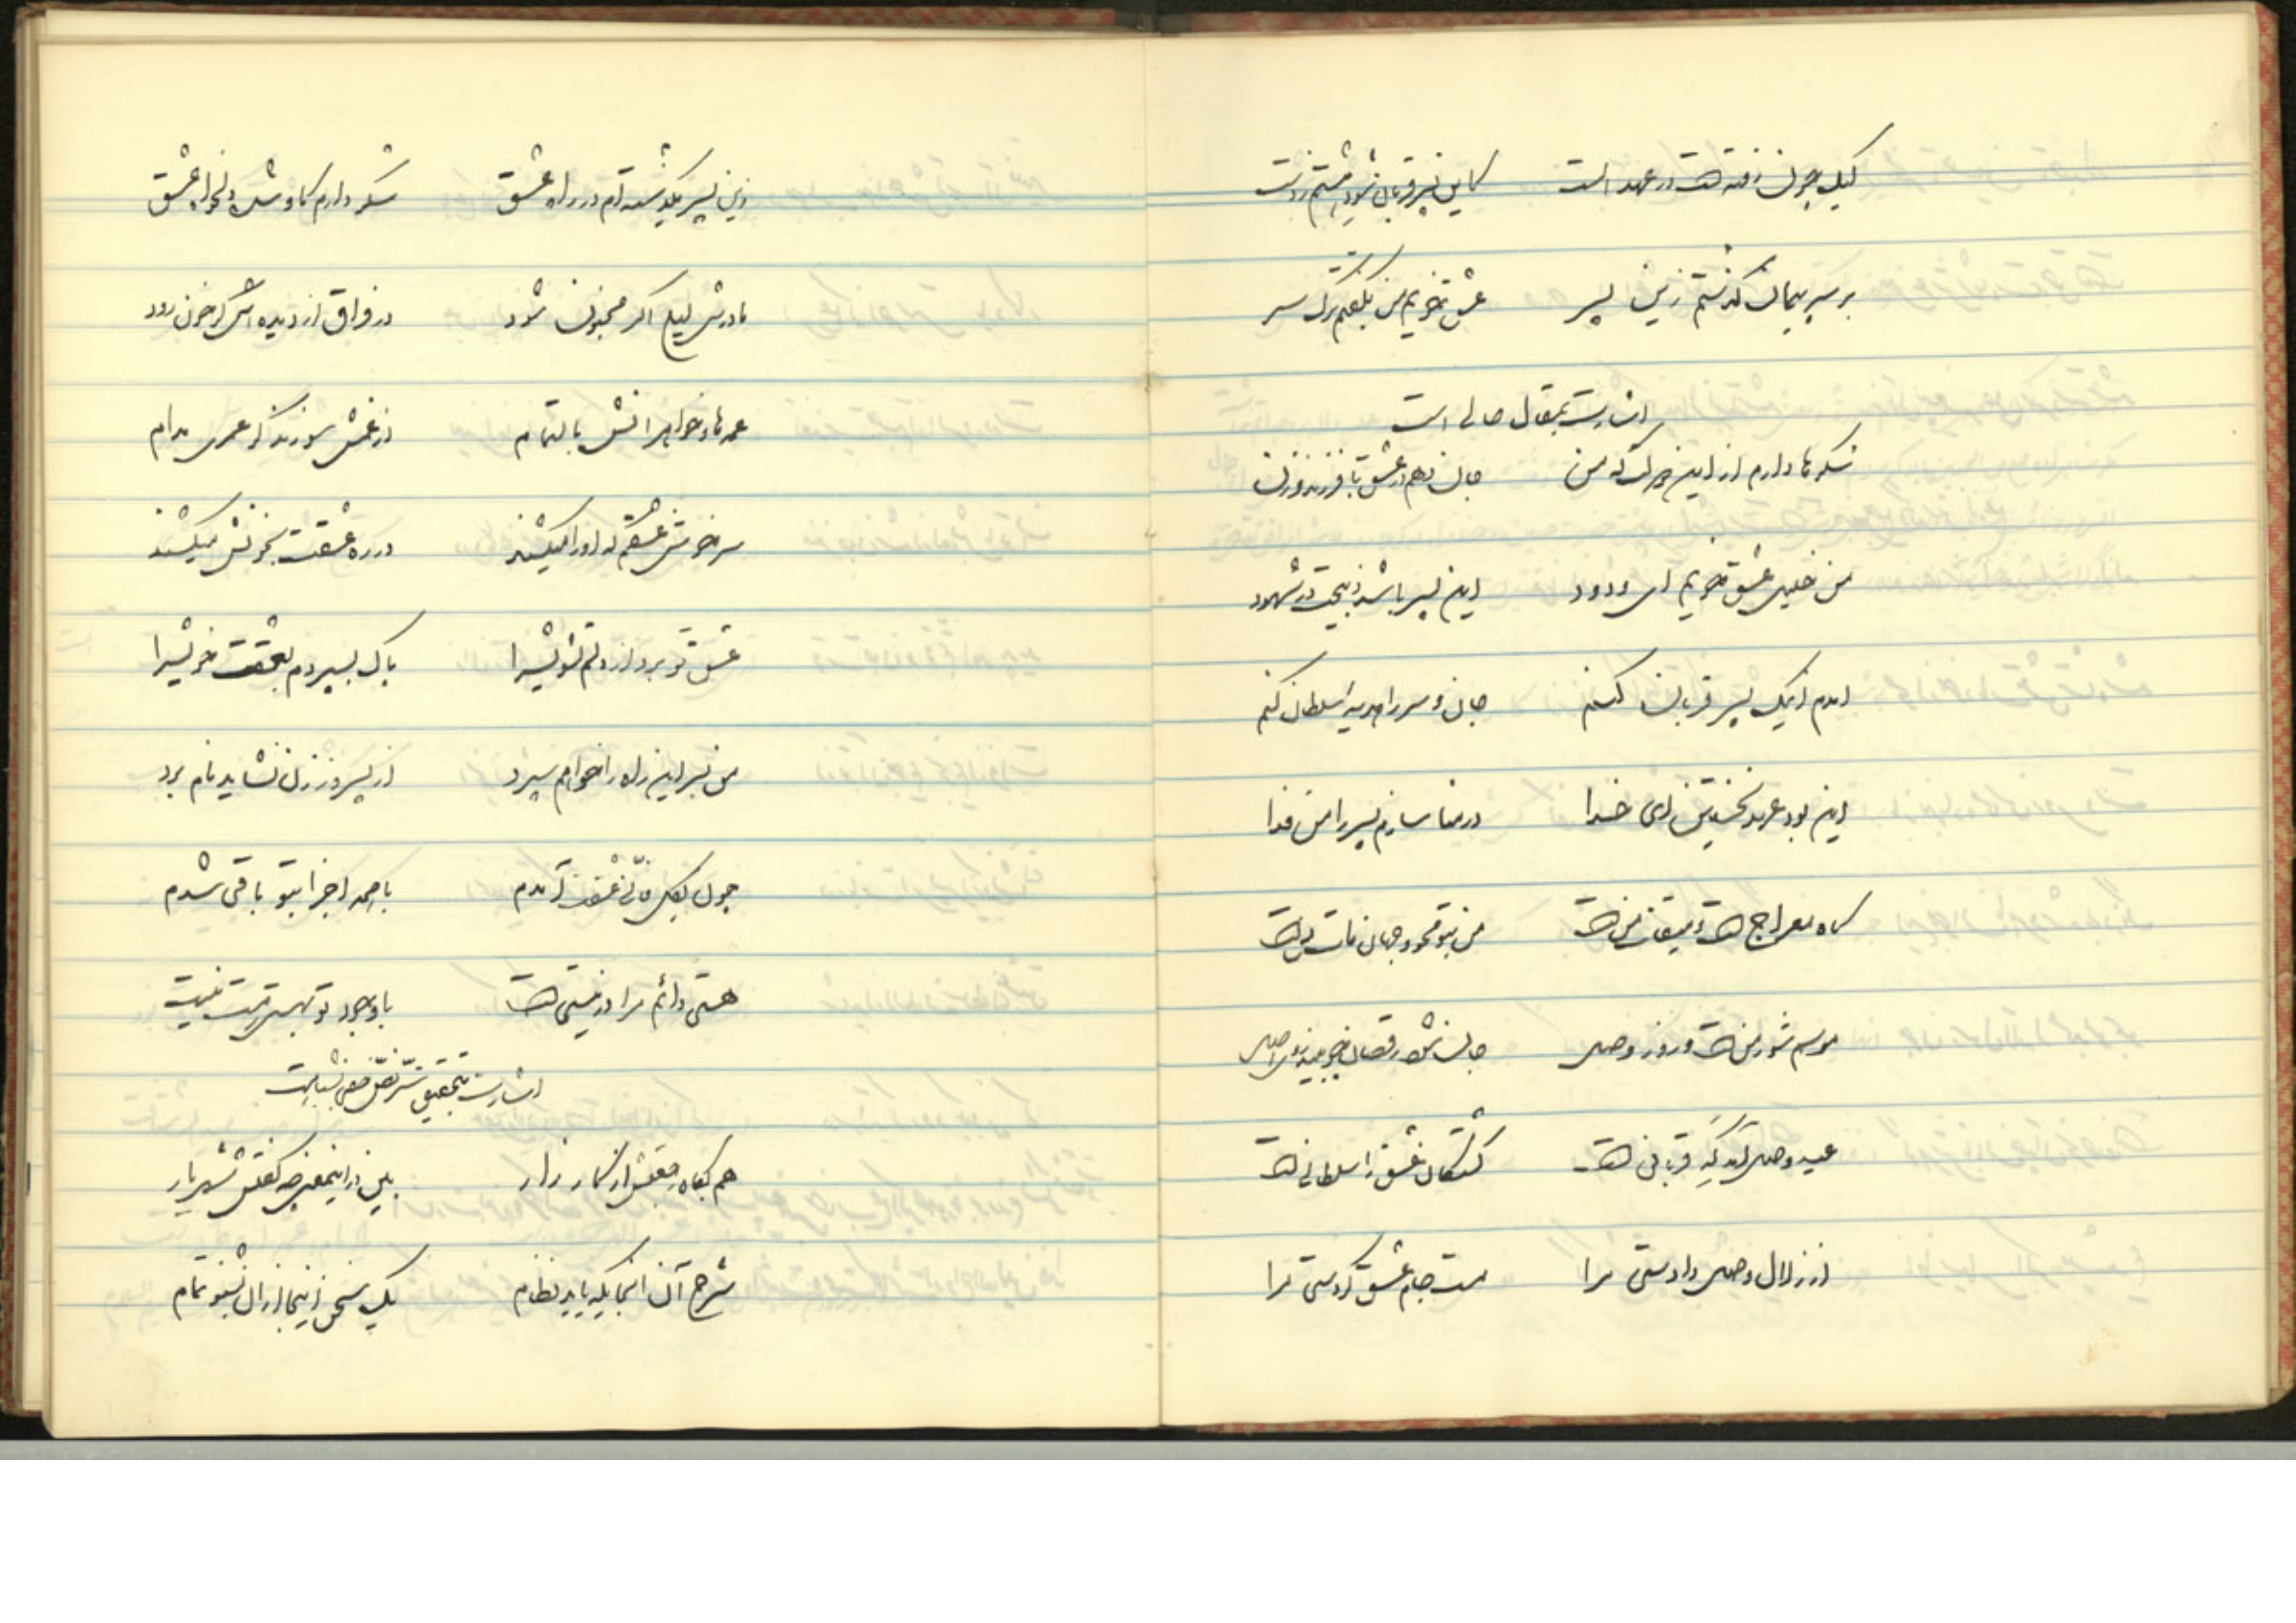 لیک چون رفته است در عهد الست کاین پسر قربان شود هشتم ز دست
بر سر پیمان گذشتم زین پسر عشق تو خریم من بگفتم ترک سر
اشارت بمقال حالی است
شکرها دارم از این دولت که من جان دهم در عشق با فرزند و زن
من خلیل عشق تو ایم ای ودود این پسر باشد ذبیحت در شهود
آمدم اینک پسر قربان کنم جان و سر را هدیه سلطان کنم
این بود عهد نخستین ای خدا در منا سازم پسر را من فدا
گاه معراج است و میقات من است من بتو محو و جهان مات من است
موسم شور من است و روز وصل جان شود رقصان چو بیند روی اصل
عید وصل آمد گه قربانی است کشتگان عشق را سلطانی است
از زلال وصل دادستی مرا مست جام عشق کردستی مرا
زین پسر بگذشته‌ام در راه عشق شکر دارم کاو شده دلخواه عشق
مادرش لیلی اگر مجنون شود در فراق از دیده اش گر خون رود
عمه‌ها و خواهرانش بالتمام از غمش سوزند گر عمری مدام
سرخوش عشقم که او را میکشند در ره عشقت بخونش میکشند
عشق تو برد از دلم تشویش را پاک بسپردم بعشقت خویش را
من بسر این راه را خواهم سپرد از پسر وز زن نشاید نام برد
چون بکل فانی عشقت آمدم با همه اجزا بتو باقی شدم
هستی دائم مرا در نیستی است با وجود تو بهستی نیست نیست
اشارت بتحقیق سر
هم بگاه رفتنش از کارزار بین در اینمعنی چه گفتش شهریار
شرح آن اینجا که باید نظام یک سخن زینجا از آن بشنو تمام